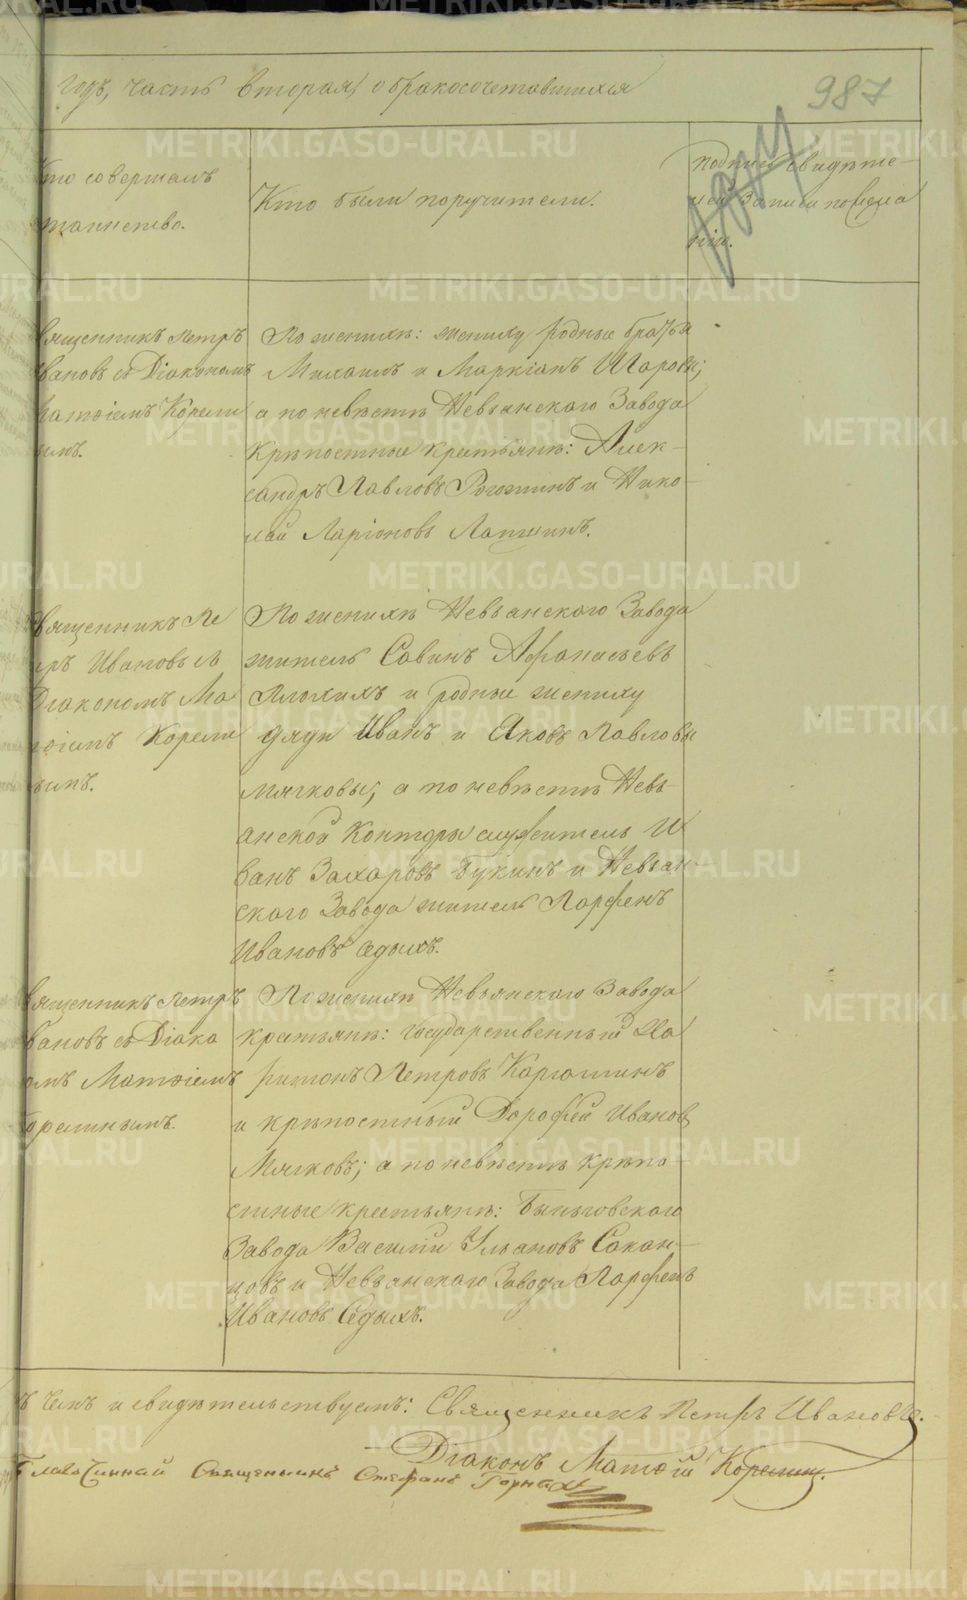 годъ, часть вторая, о бракосочетавшихся
987
Кто совершалъ
таинство.
Кто были поручители.
подпись свидѣте-
лей записи по жела
нію.
священникъ Петръ
Ивановъ съ Діакономъ
Матѳіемъ Корели
нымъ.
По женихѣ: жениху родные братья
Михаилъ и Маркіанъ Шаровы;
а по невѣстѣ Невьянскаго Завода
крѣпостные крестьяне: Алек-
сандръ Павловъ Рогожинъ и Нико-
лай Ларіоновъ Лапшинъ.
Священникъ Пе
тръ Ивановъ съ
Діакономъ Ма
тѳіемъ Корели
нымъ.
По женихѣ Невьянскаго Завода
житель Савинъ Аѳанасьевъ
Плохихъ и родные жениху
дяди Иванъ и Яковъ Павловы
Мягковы; а по невѣстѣ Невь-
анской Конторы служитель И
ванъ Захаровъ Букинъ и Невьян-
скаго Завода житель Парфенъ
Ивановъ Седыхъ.
Священникъ Петръ
Ивановъ съ Діако
номъ Матѳіемъ
Корелинымъ.
По женихѣ Невьянскаго Завода
крестьяне: Государственный Ха
ритонъ Петровъ Каргашинъ
и крѣпостный Дорофей Ивановъ
Мягковъ; а по невѣстѣ крѣпо-
стные крестьяне: Быньговскаго
Завода Василий Ульяновъ Сакан-
цовъ и Невьянскаго Завода Парфенъ
Ивановъ Седыхъ.
Въ чемъ и свидѣтельствуемъ: Священникъ Петръ Ивановъ.
Діаконъ Матѳій Корелинъ.
Благочинный Священникъ Стефанъ Горныхъ
METRIKI.GASO-URAL.RU